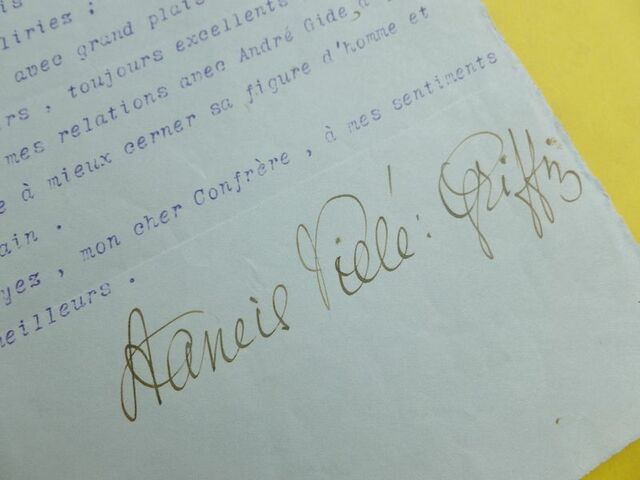 is
liriez ;
avec grand plais
rs , toujours excellents
mes relations avec André Gide, a
e à mieux cerner sa figure d'homme et
ain .
yez , mon cher Confrère , à mes sentiments
meilleurs .
Francis Vielé-Griffin